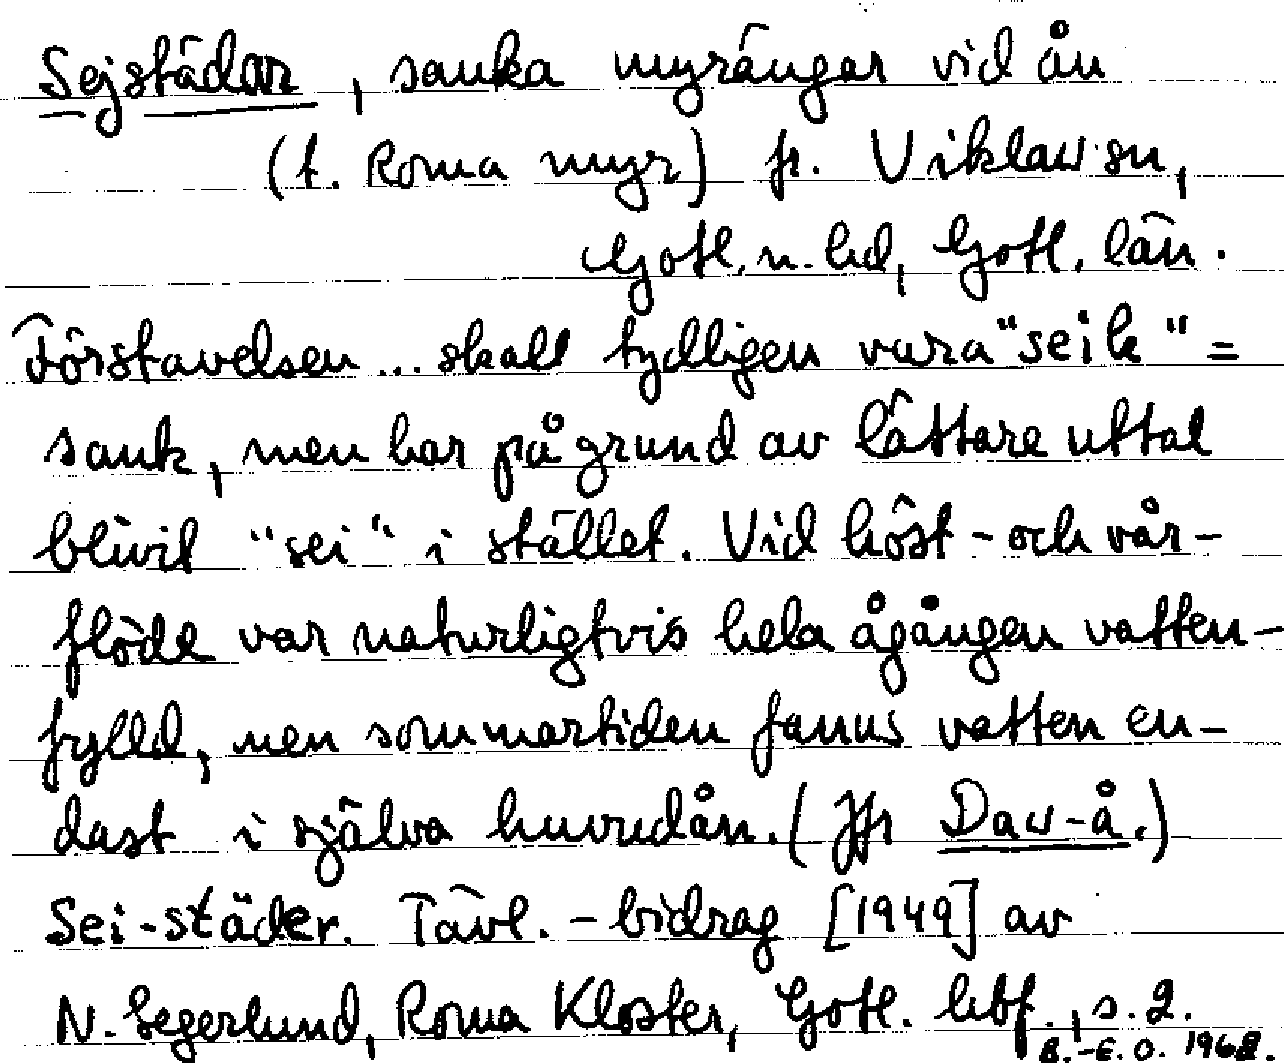 Sejstädar, sanka myrängar vid ån
(f. Roma myr) fr. Viklau sn,
Gotl. n. hd, Gotl. län.
Förstavelsen... skall tydligen vara "seik" =
sank, men har på grund av lättare uttal
blivit "sei" i stället. Vid höst- och vår-
flöde var naturligtvis hela ågången vatten-
fylld, men sommartiden fanns vatten en-
dast i själva huvudån. (Jfr Dav-å.)
Sei-städer. Tävl.-bidrag [1949] av
N. Segerlund, Roma Kloster, Gotl. hbf., s. 2.
B.-E. O. 1968.